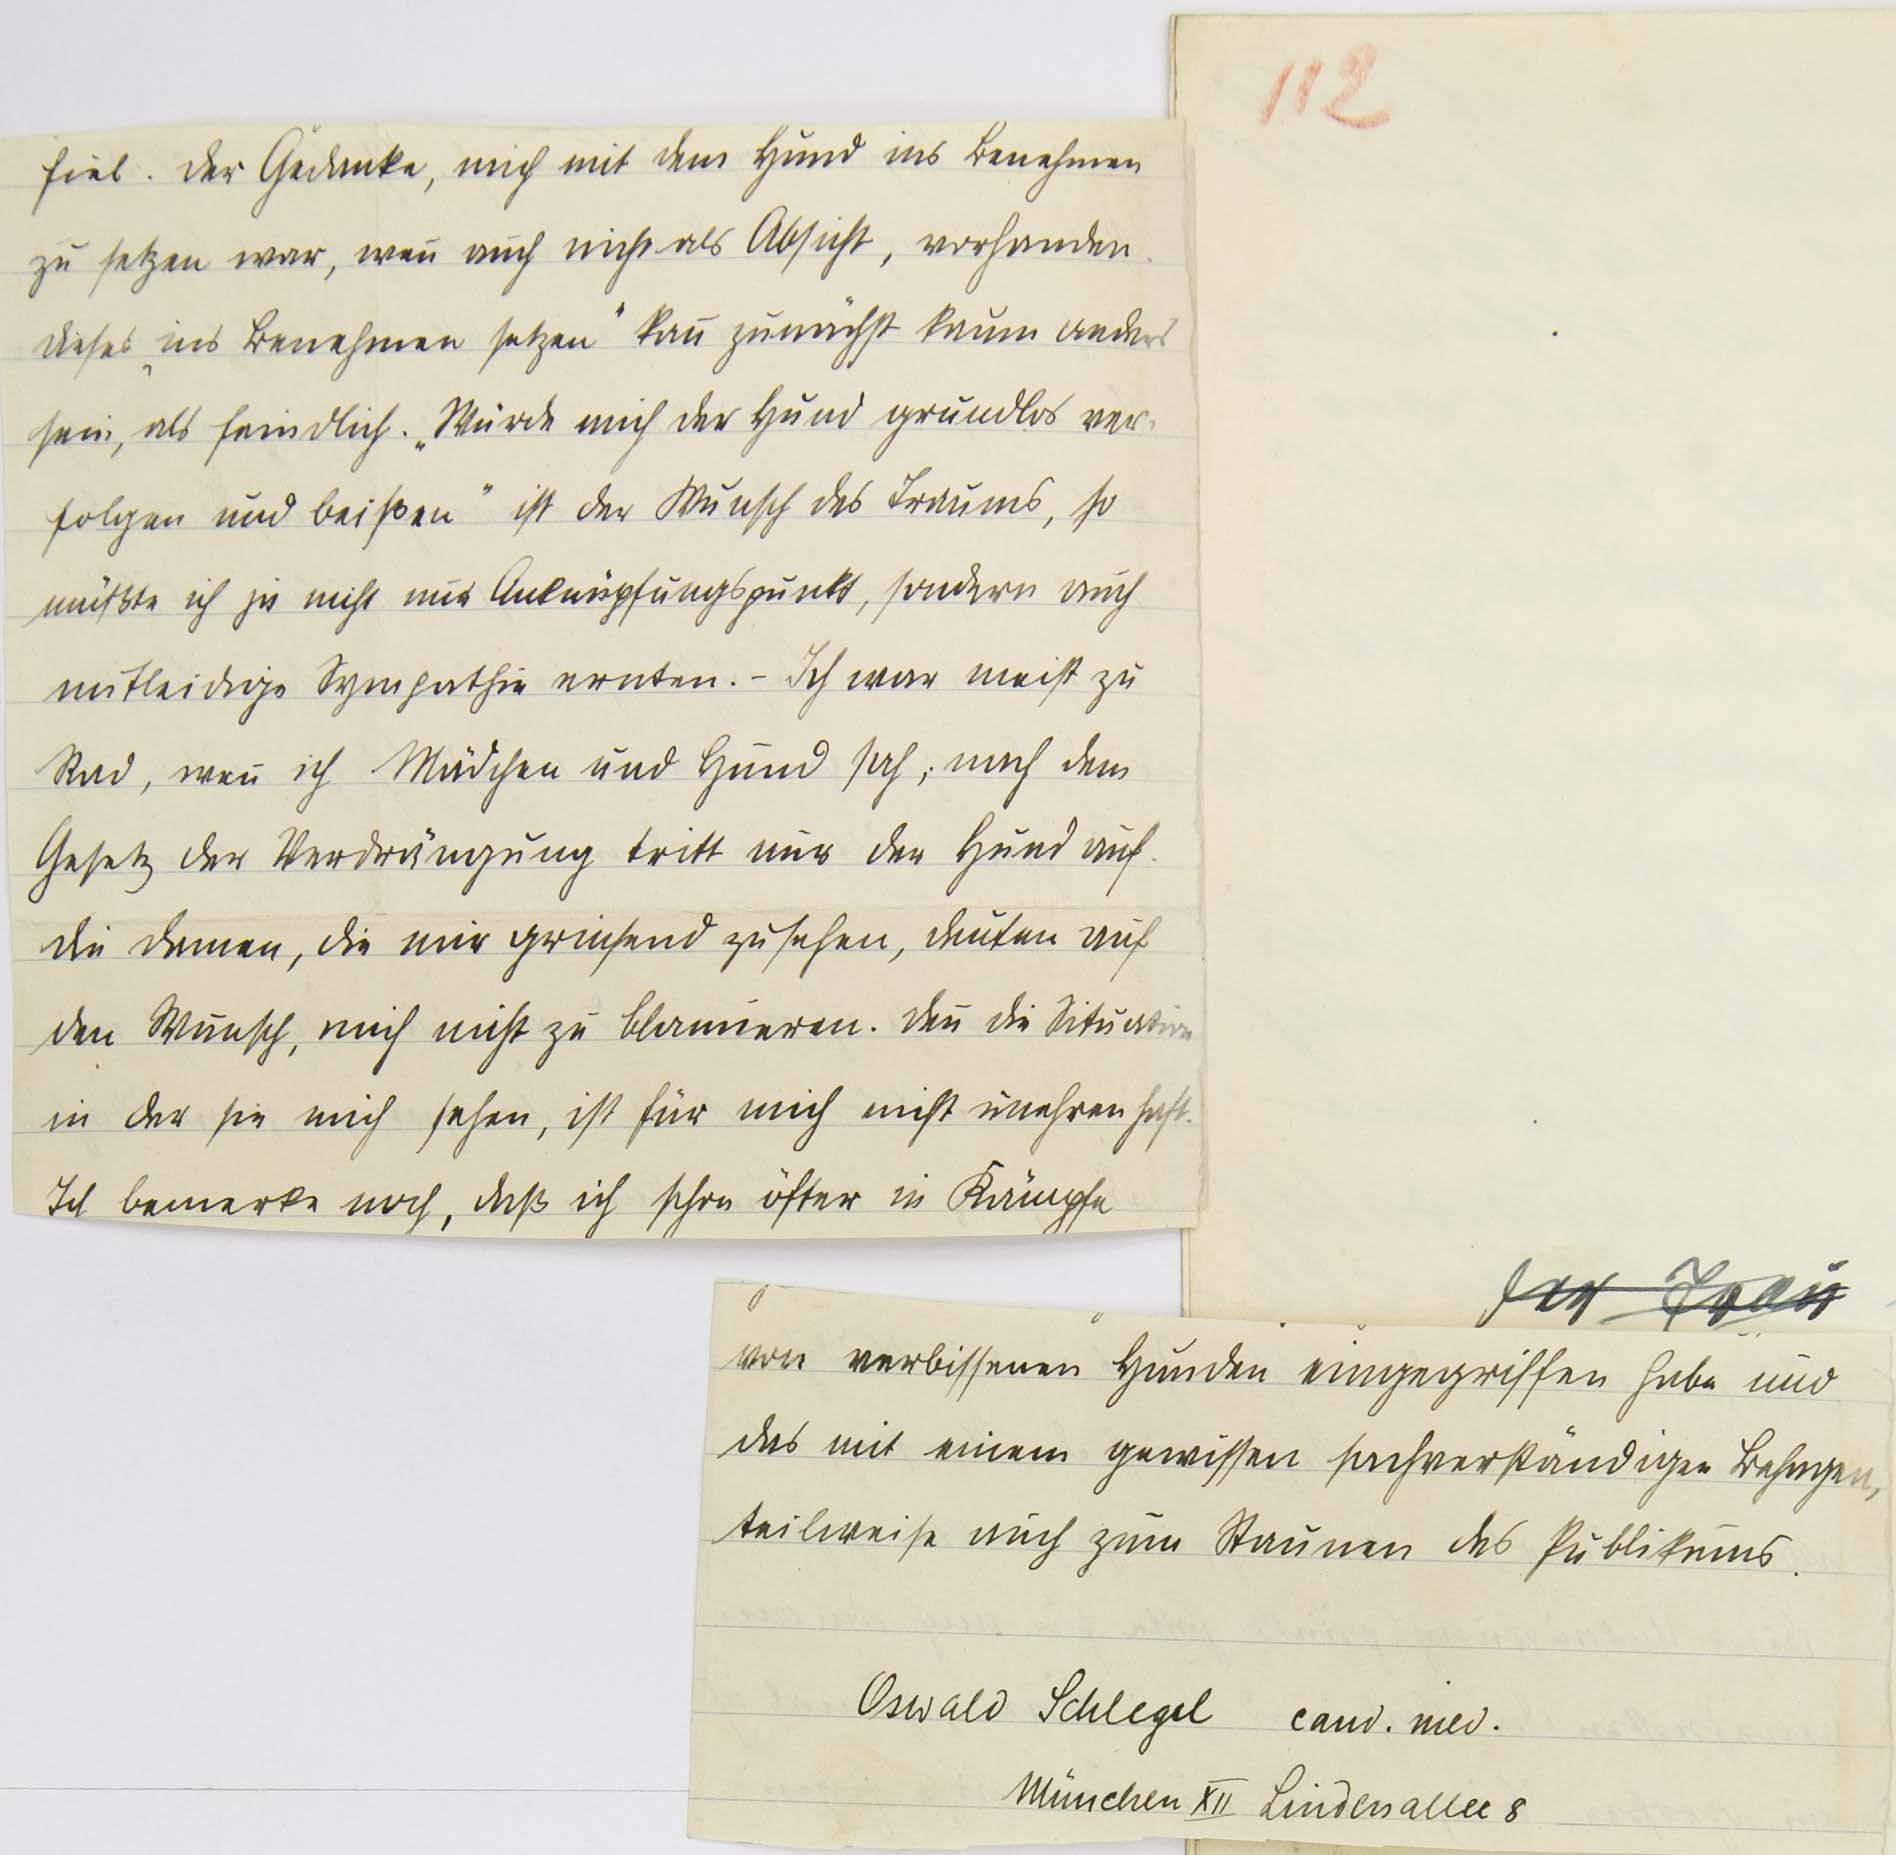 112
fiel. Der Gedanke, mich mit dem Hund ins Benehmen
zu setzen war, wen̄ auch nicht als Absicht, vorhanden.
Dieses „ins Benehmen setzen" kan̄ zunächst kaum anders
sein, als feindlich. „Würde mich der Hund grundlos ver-
folgen und beißen" ist der Wunsch des Traums, so
müßte ich ja nicht nur Anknüpfungspunkt, sondern auch
mitleidige Sympathie ernten. - Ich war meist zu
Rad, wen̄ ich Mädchen und Hund sah; nach dem
Gesetz der Verdrängung tritt nur der Hund auf.
Die Damen, die mir grinsend zusehen, deuten auf
den Wunsch, mich nicht zu blamieren. Den̄ die Situation
in der sie mich sehen, ist für mich nicht unehrenhaft.
Ich bemerke noch, daß ich schon öfter in Kämpfe
der Frau
von verbissenen Hunden eingegriffen habe und
das mit einem gewissen sachverständigen Behagen,
teilweise auch zum Staunen des Publikums.
Oswald Schlegel cand. med.
München XII Lindenallee 8